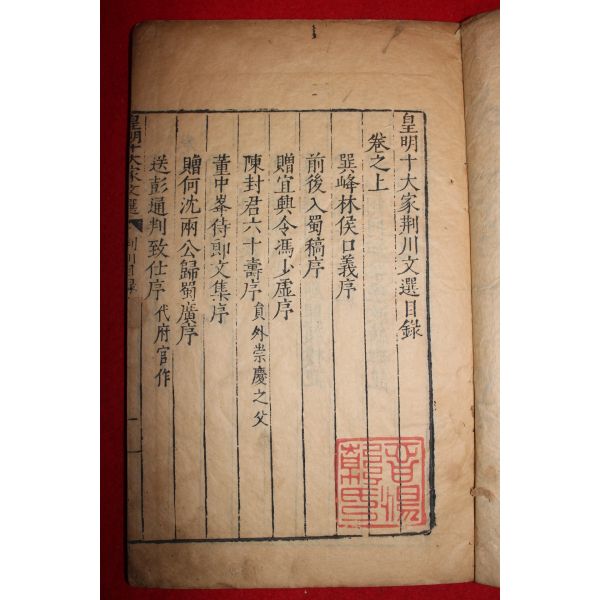 皇明十大家荆川文選目錄
卷之上
巽峰林侯口義序
前後入蜀稿序
贈宜興令馮少虛序
陳封君六十壽序 員外崇慶之父
董中峯侍郎文集序
贈何沈兩公歸蜀廣序
送彭通判致仕序 代府官作
皇明十大家文選 荆川目錄 一